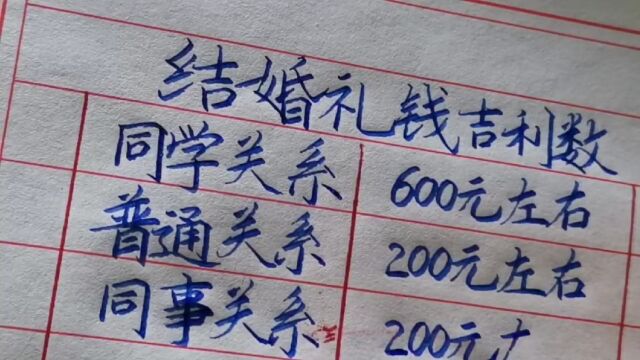 结婚礼钱吉利数
同学关系 600元左右
普通关系 200元左右
同事关系 200元